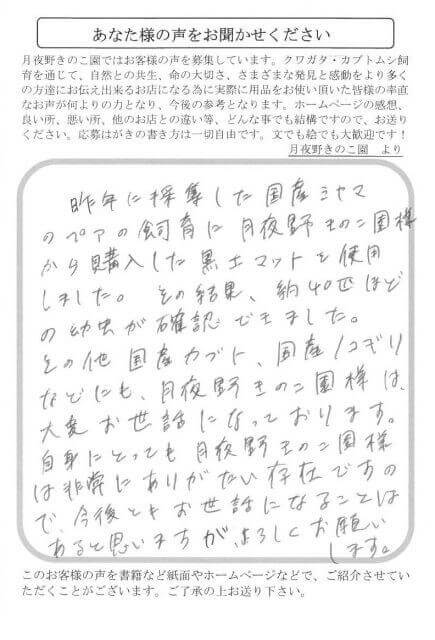 あなた様の声をお聞かせください
月夜野きのこ園ではお客様の声を募集しています。クワガタ・カブトムシ飼
育を通じて、自然との共生、命の大切さ、さまざまな発見と感動をより多く
の方達にお伝え出来るお店になる為に実際に用品をお使い頂いた皆様の率直
なお声が何よりの力となり、今後の参考となります。ホームページの感想、
良い所、悪い所、他のお店との違い等、どんな事でも結構ですので、お送り
ください。応募はがきの書き方は一切自由です。文でも絵でも大歓迎です！
月夜野きのこ園　より
昨年に採集した国産ミヤマ
のペアの飼育に月夜野きのこ園様
から購入した黒土マットを使用
しました。その結果、約40匹ほど
の幼虫が確認できました。
その他国産カブト、国産ノコギリ
などにも、月夜野きのこ園様は、
大変お世話になっております。
自身にとっても月夜野きのこ園様
は非常にありがたい存在ですの
で、今後ともお世話になることは
あると思いますが、よろしくお願い
します。
このお客様の声を書籍など紙面やホームページなどで、ご紹介させてい
ただくことがございます。ご了承の上お送り下さい。